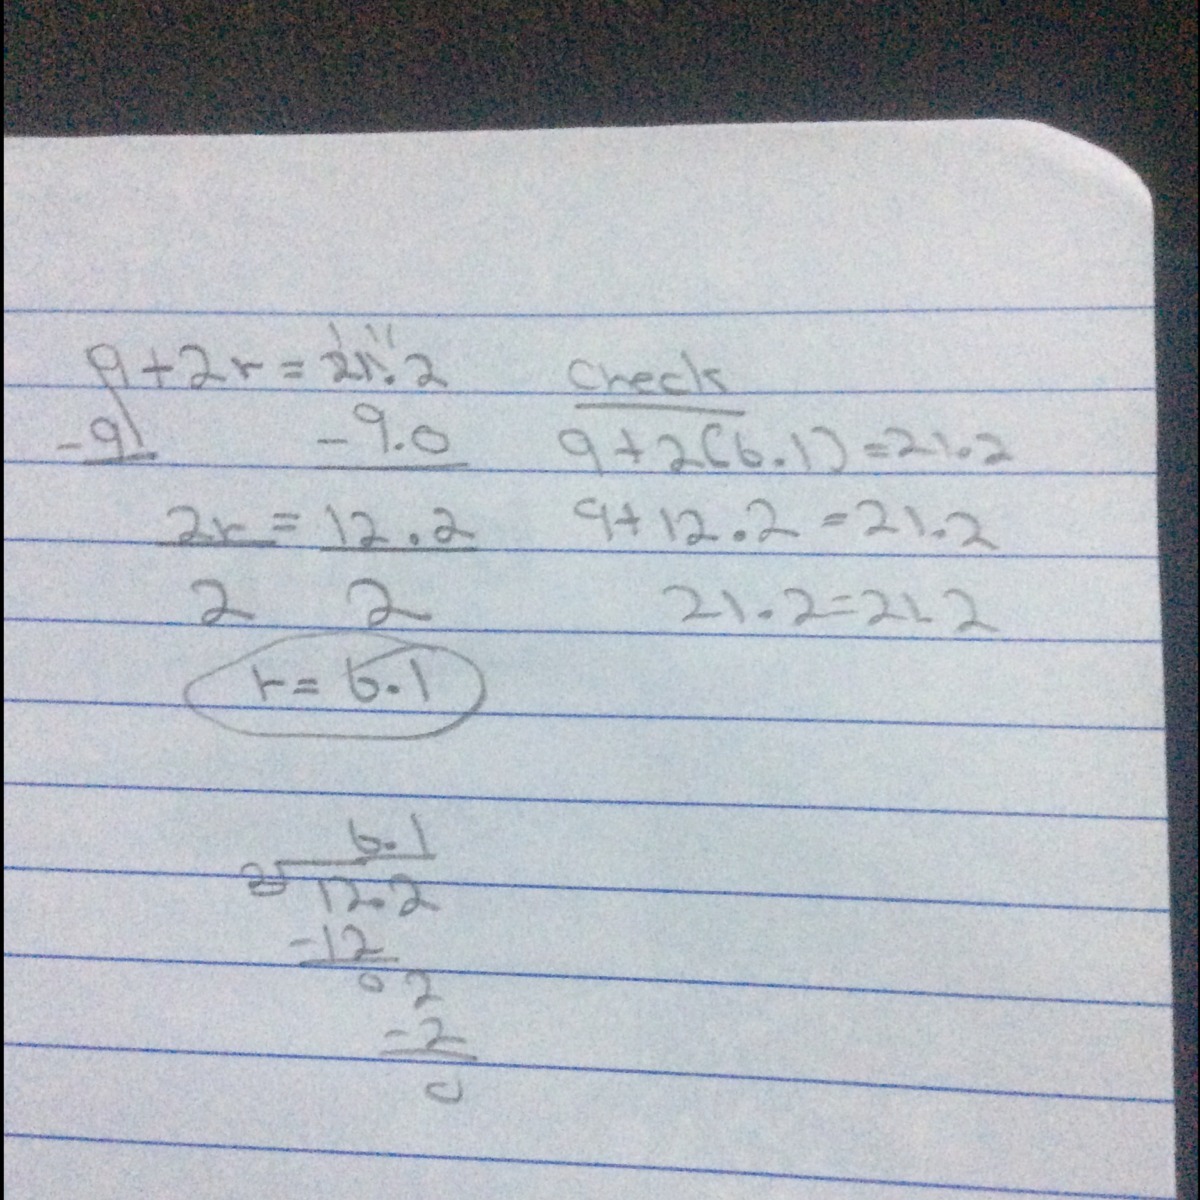 9+2r=21.2
-9 -9.0
2r=12.2
2 2
r=6.1
Check
9+2(6.1)=21.2
9+12.2=21.2
21.2=21.2
6.1
2 12.2
-12
02
-2
0